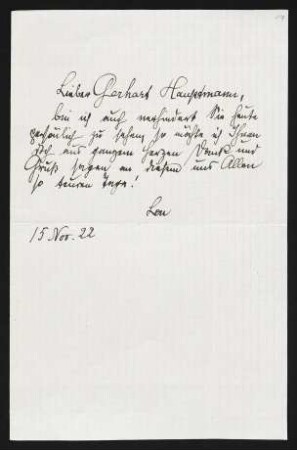 Lieber Gerhart Hauptmann,
bin ich auch verhindert Sie heute
persönlich zu sehen, so möchte ich Ihnen
doch aus ganzem Herzen Dank und
Gruß sagen an diesem uns Allen
so teuren Tage!
15 Nov. 22